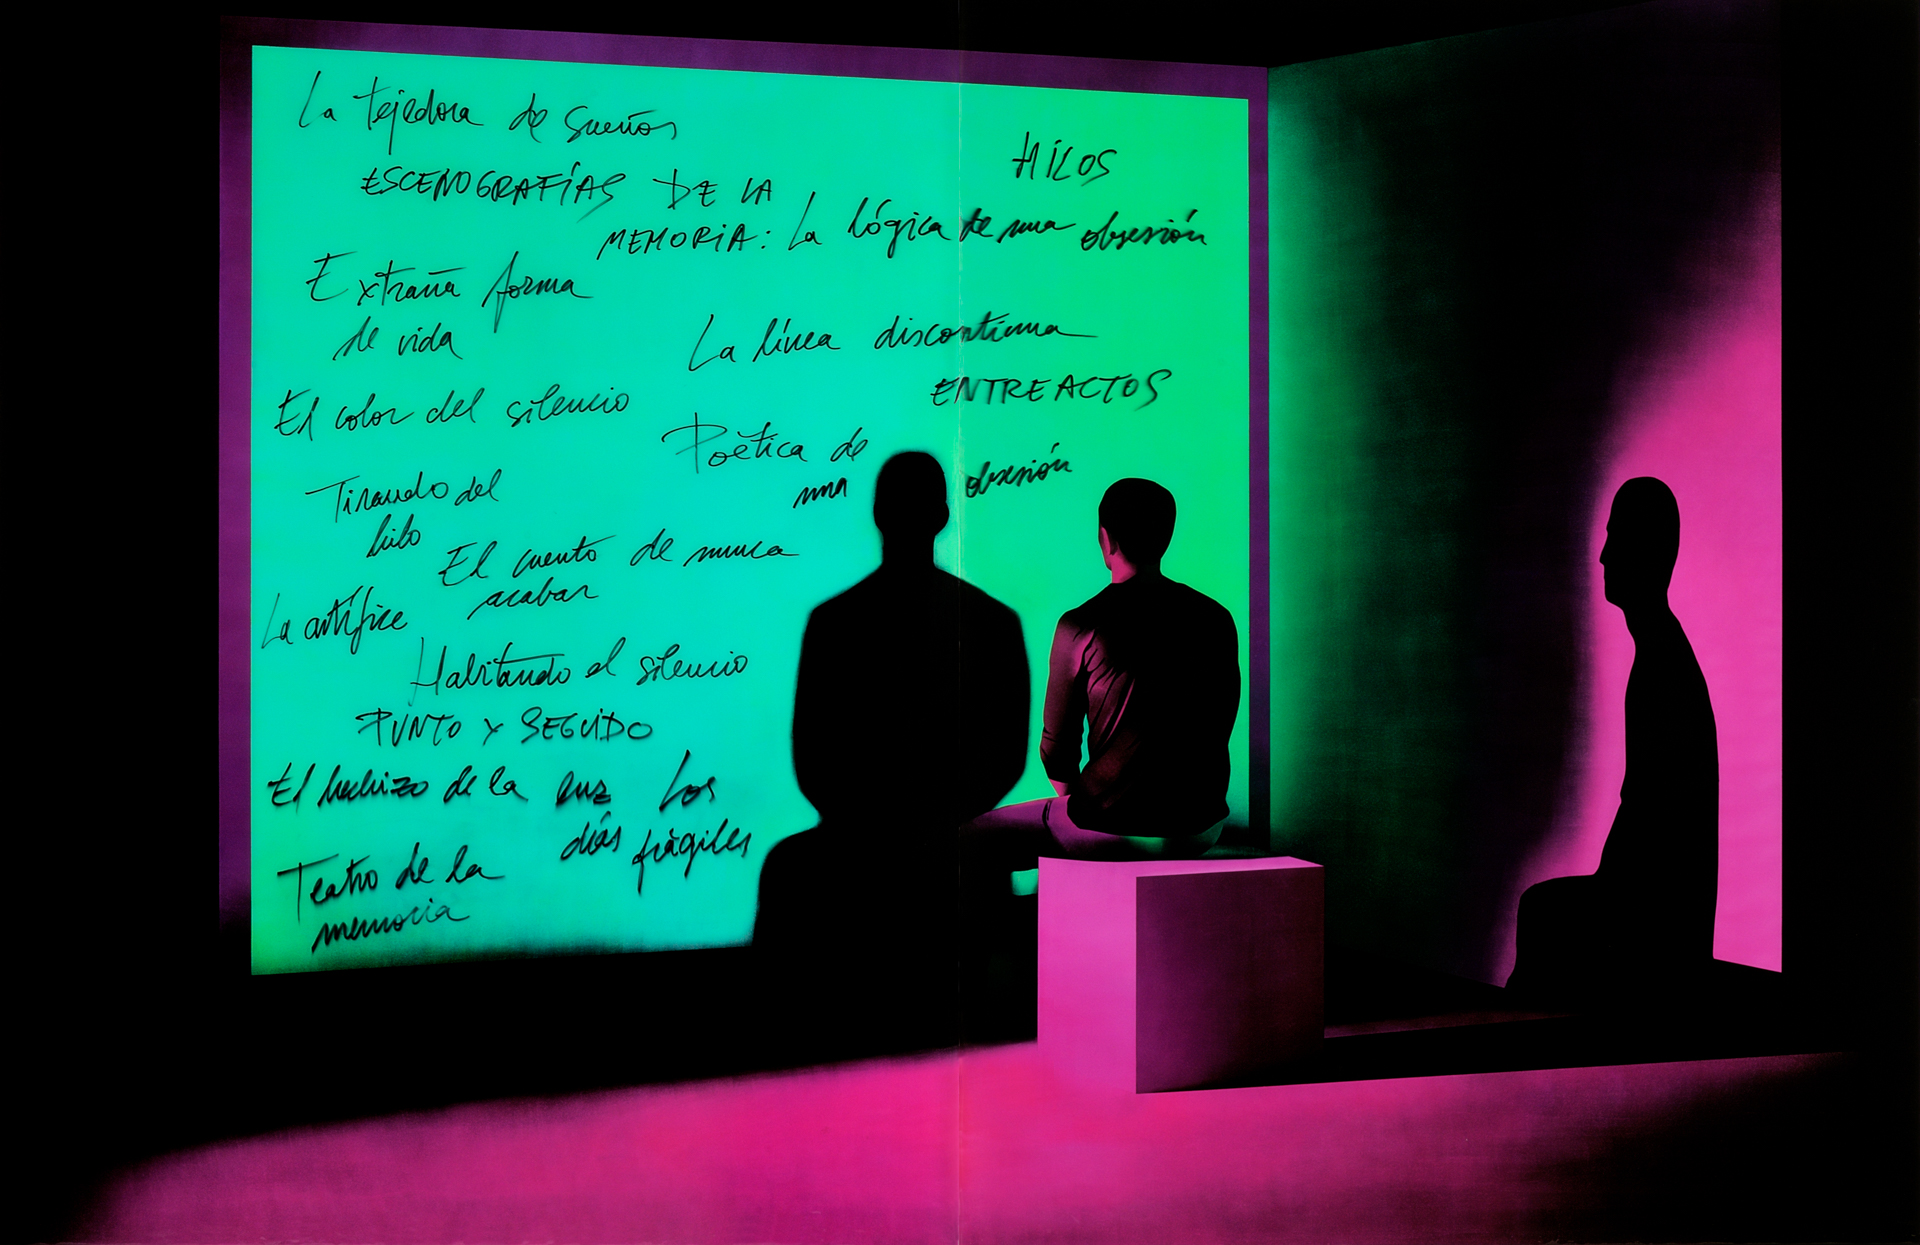 La tejedora de sueños
HILOS
ESCENOGRAFÍAS DE LA
MEMORIA: La lógica de una obsesión
Extraña forma
de vida
La línea discontinua
ENTREACTOS
El color del silencio
Poética de
una obsesión
Tirando del
hilo
El cuento de nunca
acabar
La artífice
Habitando el silencio
PUNTO Y SEGUIDO
El hechizo de la luz
Los
días frágiles
Teatro de la
memoria